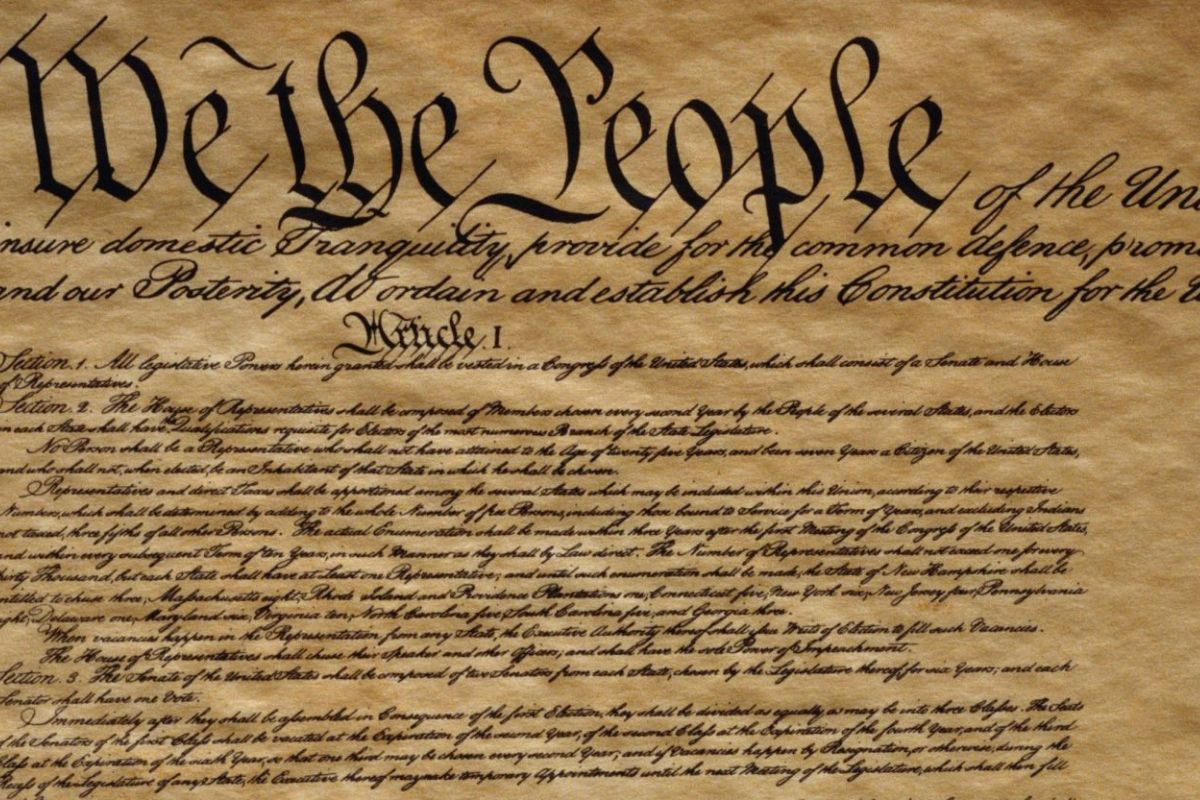 We the People of the Un
insure domestic Tranquility, provide for the common defence, prom
and our Posterity, do ordain and establish this Constitution for the U
Article I.
Section. 1. All legislative Powers herein granted shall be vested in a Congress of the United States, which shall consist of a Senate and House
of Representatives.
Section. 2. The House of Representatives shall be composed of Members chosen every second Year by the People of the several States, and the Electors
in each State shall have Qualifications requisite for Electors of the most numerous Branch of the State Legislature.
No Person shall be a Representative who shall not have attained to the Age of twenty five Years, and been seven Years a Citizen of the United States,
and who shall not, when elected, be an Inhabitant of that State in which he shall be chosen.
Representatives and direct Taxes shall be apportioned among the several States which may be included within this Union, according to their respective
Numbers, which shall be determined by adding to the whole Number of free Persons, including those bound to Service for a Term of Years, and excluding Indians
not taxed, three fifths of all other Persons. The actual Enumeration shall be made within three Years after the first Meeting of the Congress of the United States,
and within every subsequent Term of ten Years, in such Manner as they shall by Law direct. The Number of Representatives shall not exceed one for every
thirty Thousand, but each State shall have at Least one Representative; and until such enumeration shall be made, the State of New Hampshire shall be
entitled to chuse three, Massachusetts eight, Rhode Island and Providence Plantations one, Connecticut five, New York six, New Jersey four, Pennsylvania
eight, Delaware one, Maryland six, Virginia ten, North Carolina five, South Carolina five, and Georgia three.
When vacancies happen in the Representation from any State, the Executive Authority thereof shall issue Writs of Election to fill such Vacancies.
The House of Representatives shall chuse their Speaker and other Officers; and shall have the sole Power of Impeachment.
Section. 3. The Senate of the United States shall be composed of two Senators from each State, chosen by the Legislature thereof, for six Years; and each
Senator shall have one Vote.
Immediately after they shall be assembled in Consequence of the first Election, they shall be divided as equally as may be into three Classes. The Seats
of the Senators of the first Class shall be vacated at the Expiration of the second Year, of the second Class at the Expiration of the fourth Year, and of the third
Class at the Expiration of the sixth Year, so that one third may be chosen every second Year; and if Vacancies happen by Resignation, or otherwise, during the
Recess of the Legislature of any State, the Executive thereof may make temporary Appointments until the next Meeting of the Legislature, which shall then fill